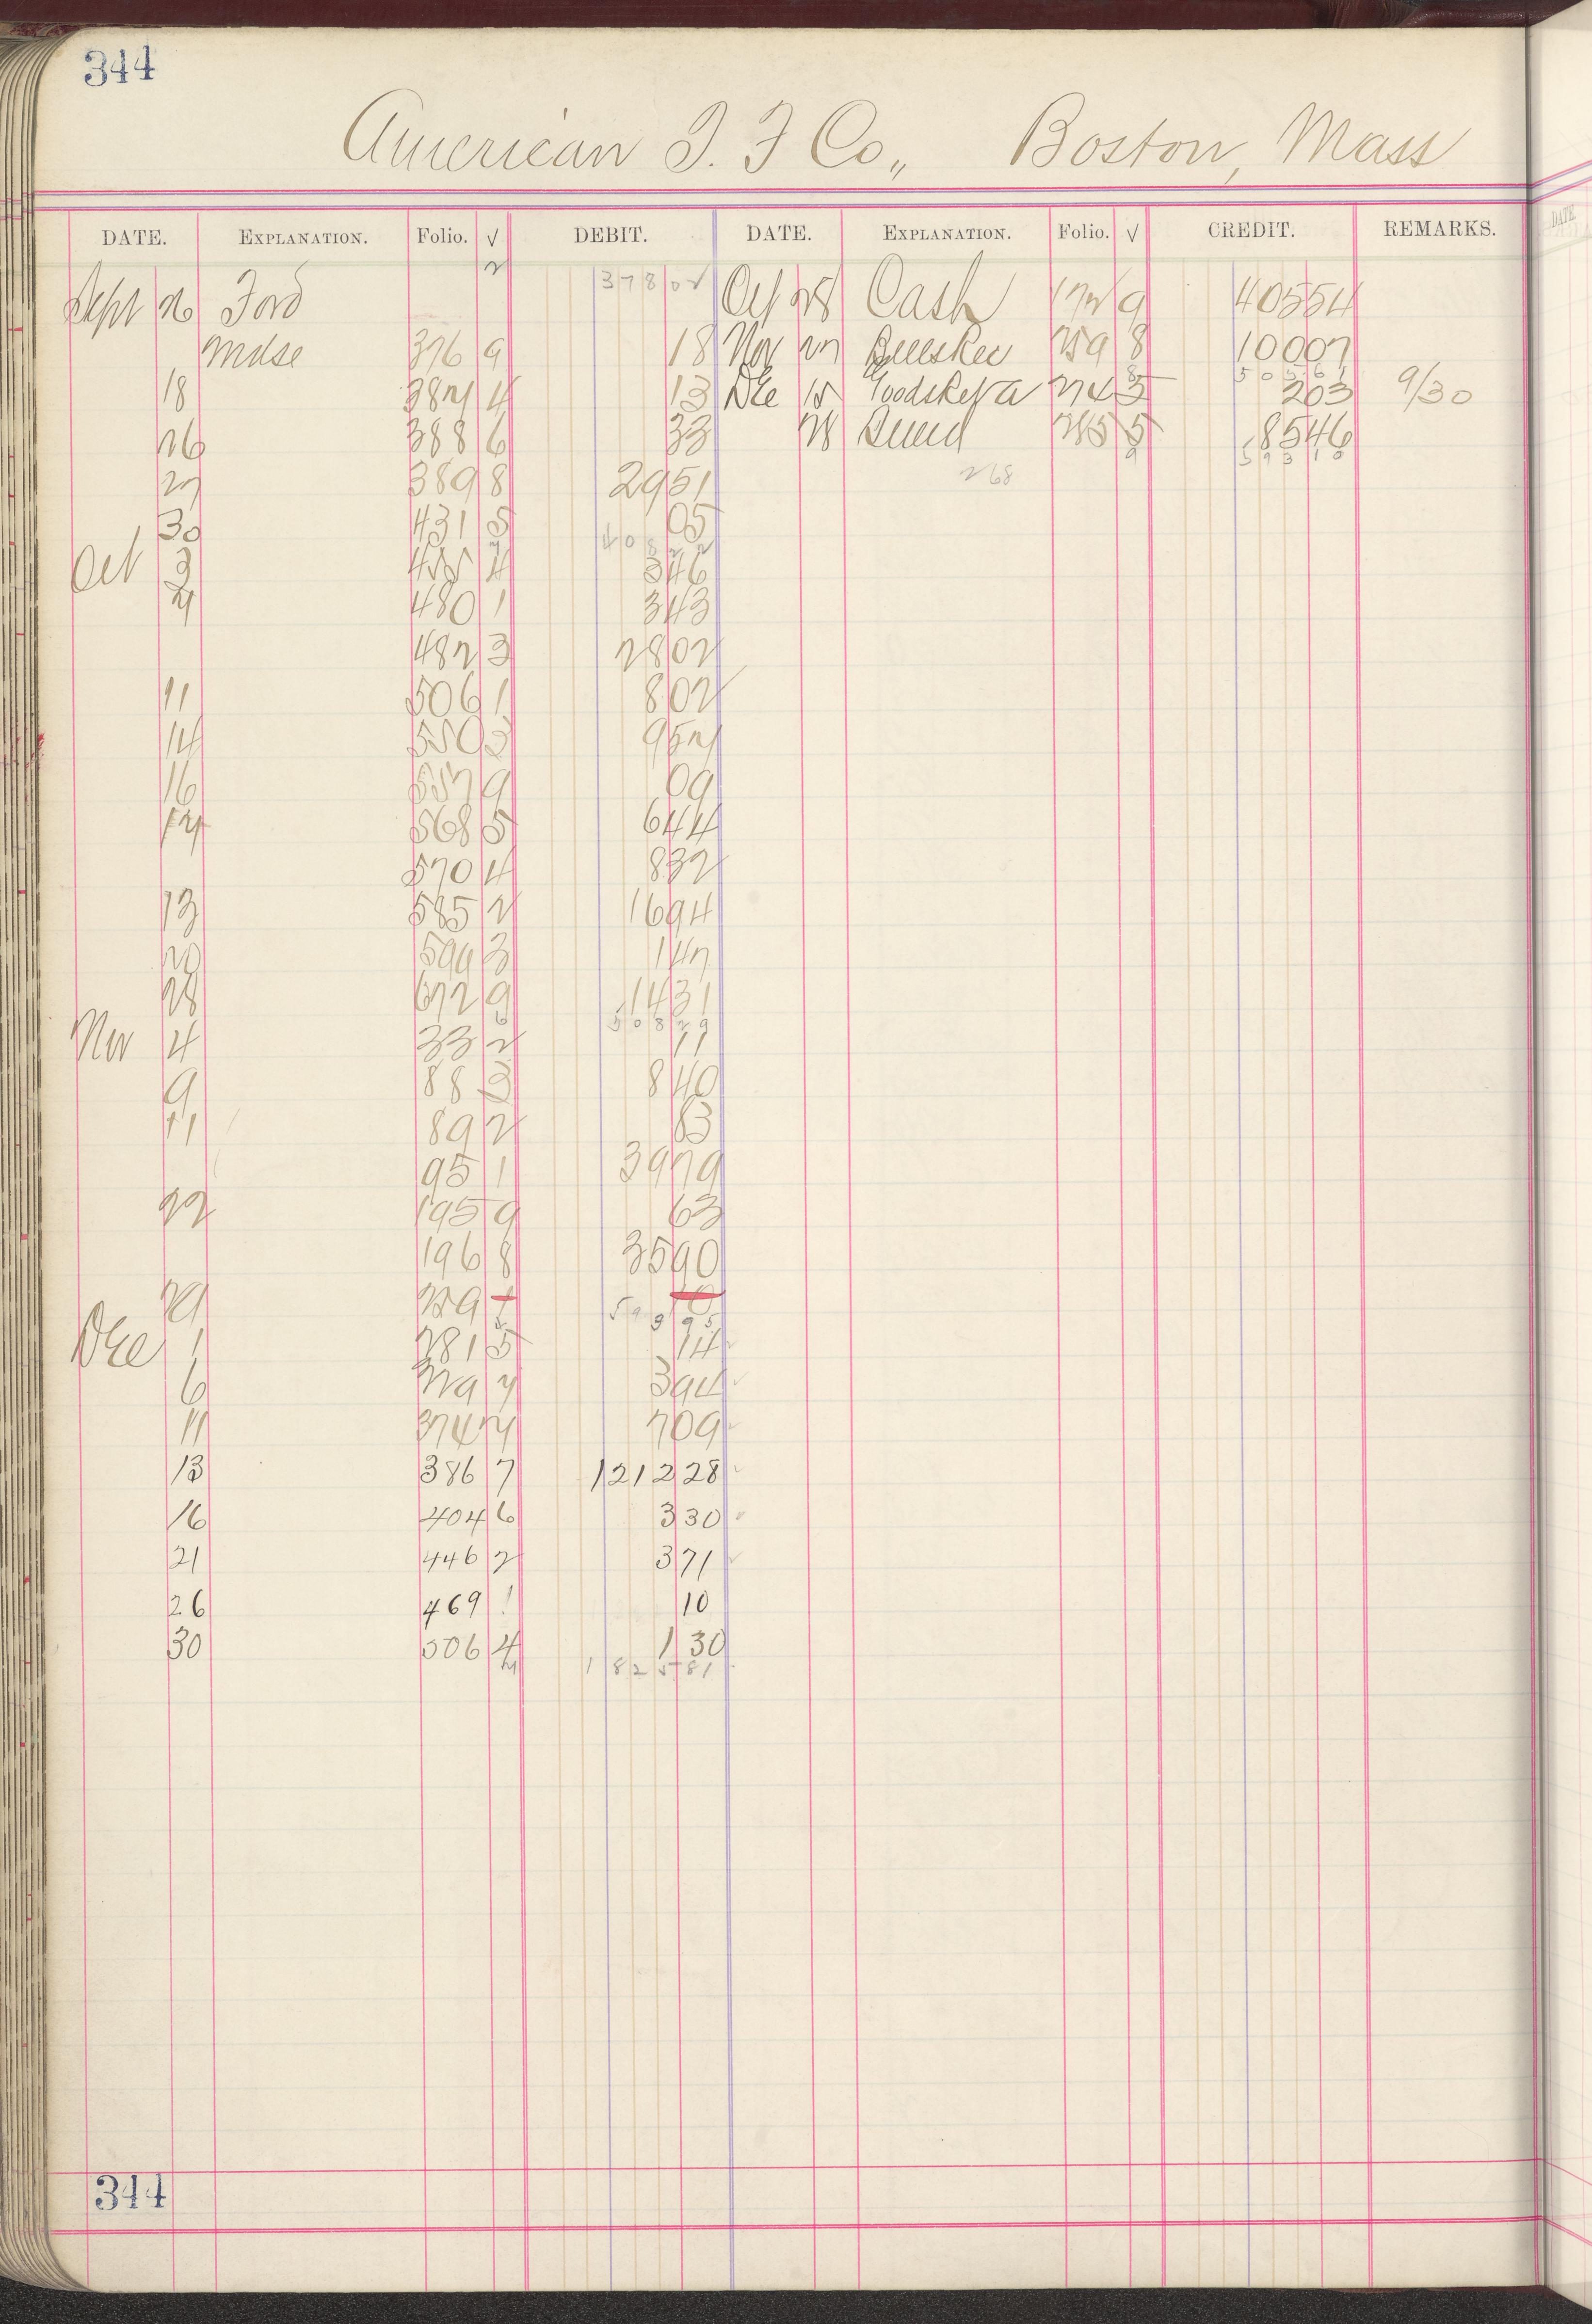 344
American I. F Co., Boston, Mass
DATE. EXPLANATION. Folio. √ DEBIT. DATE. EXPLANATION. Folio. √ CREDIT. REMARKS.
Sept Ford 378 02 Oct 28 Cash 172 9 405 54
Mdse 376 9 18 Nov 27 259 8 100 07
18 382 4 13 Dec 274 5 2 03 9/30
26 388 6 33 28 285 5 85 46
27 389 8 29 51 268
30 431 5 05
Oct 3 4 3 46
4 480 1 3 43
482 3 28 02
11 506 1 8 02
14 550 3 9 52
16 557 9 09
17 568 5 6 44
570 4 8 32
18 585 2 16 94
20 599 3 1 47
28 672 9 14 31
508 29
Nov 4 33 2 11
9 88 3 8 40
11 89 2 63
95 1 39 79
22 195 9 63
196 8 35 90
29 259 1 10
593 95
Dec 1 281 5 14
6 329 7 3 94
11 374 7 09
13 386 7 1212 28
16 404 6 3 30
21 446 2 3 71
26 469 1 10
30 506 4 1 30
1825 81
344